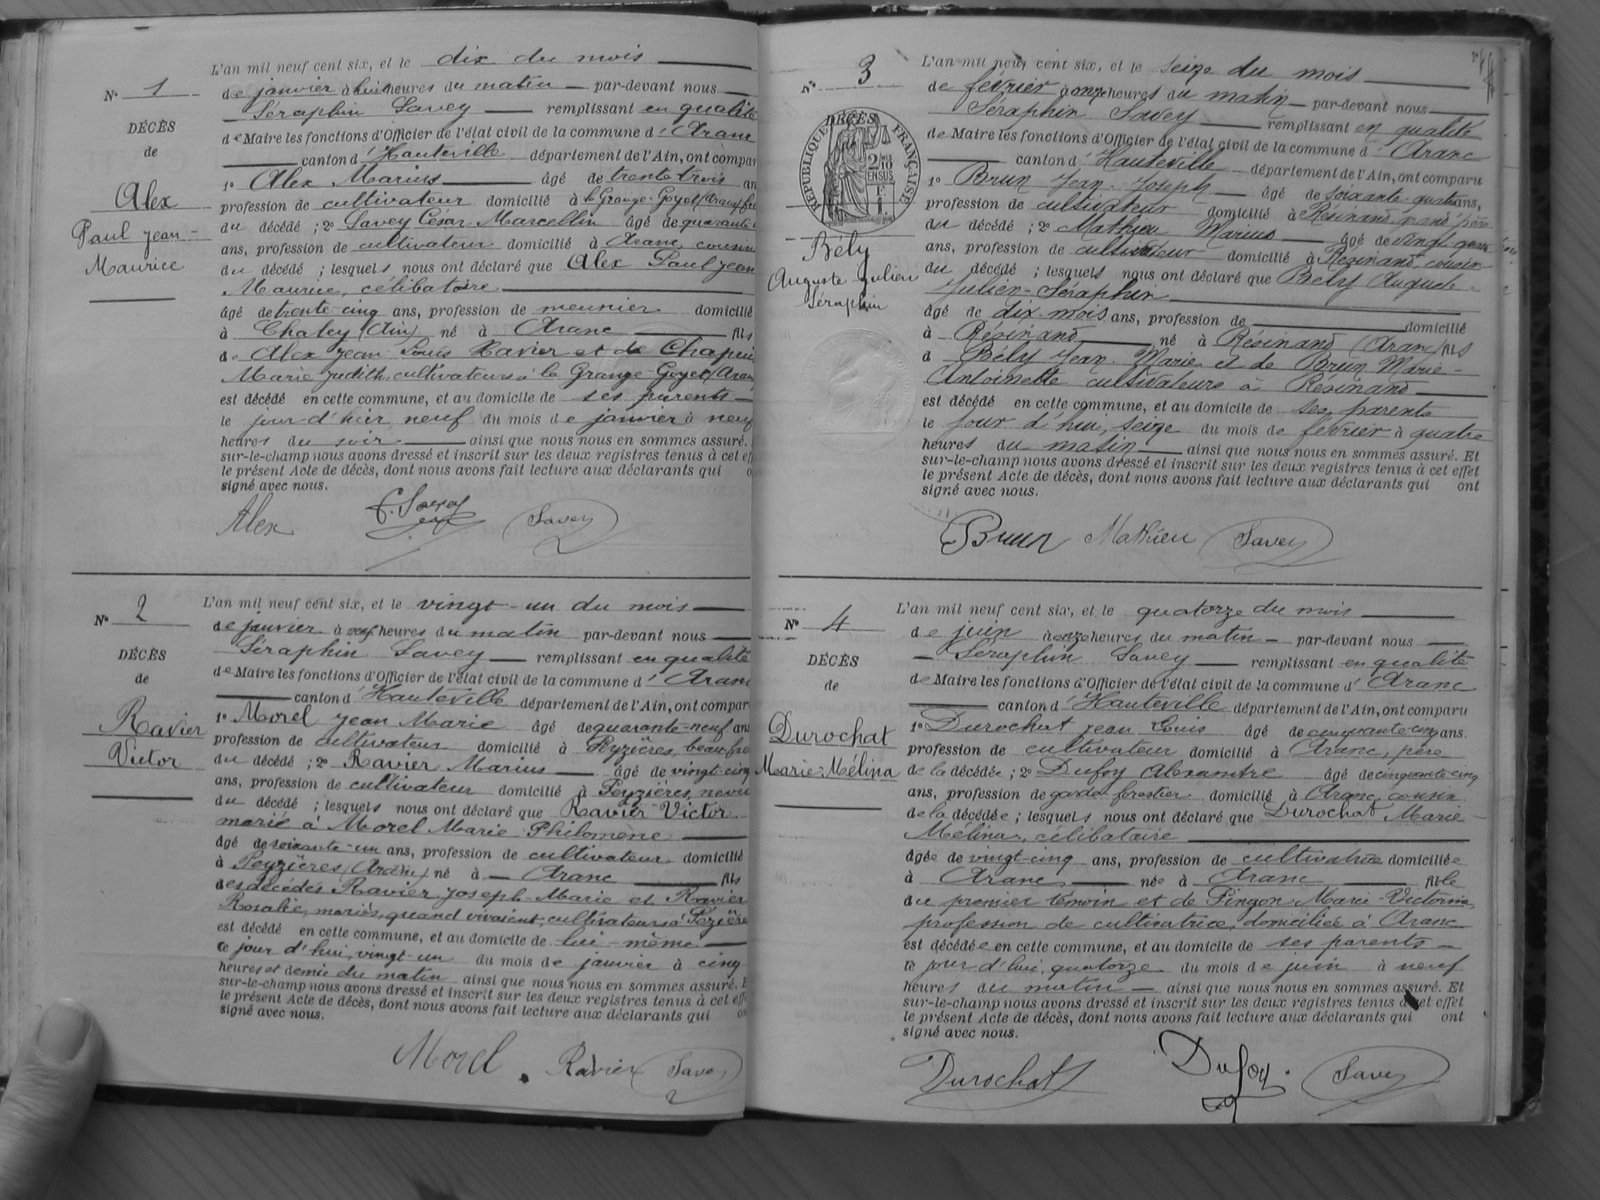 N° 1
DÉCÈS
de
Alex
Paul Jean
Maurice
L'an mil neuf cent six, et le dix du mois
de janvier à huit heures du matin par-devant nous
Séraphin Savey remplissant en qualité
de Maire les fonctions d'Officier de l'état civil de la commune d'Aranc
canton d'Hauteville département de l'Ain, ont compar
1° Alex Marius âgé de trente trois an
profession de cultivateur domicilié à la Grange-Goyet (Aranc) frè
du décédé ; 2° Savey César Marcellin âgé de quarante
ans, profession de cultivateur domicilié à Aranc, cousin
du décédé ; lesquels nous ont déclaré que Alex Paul Jean
Maurice, célibataire
âgé de trente cinq ans, profession de meunier domicilié
à Chaley (Ain) né à Aranc fils
de Alex Jean Louis Xavier et de Chapuis
Marie Judith, cultivateurs à la Grange-Goyet (Aran
est décédé en cette commune, et au domicile de ses parents
le jour d'hier neuf du mois de janvier à neuf
heures du soir ainsi que nous nous en sommes assuré.
sur-le-champ nous avons dressé et inscrit sur les deux registres tenus à cet eff
le présent Acte de décès, dont nous avons fait lecture aux déclarants qui o
signé avec nous.
Alex C. Savey Savey
N° 2
DÉCÈS
de
Ravier
Victor
L'an mil neuf cent six, et le vingt-un du mois
de janvier à neuf heures du matin par-devant nous
Séraphin Savey remplissant en qualité
de Maire les fonctions d'Officier de l'état civil de la commune d'Aranc
canton d'Hauteville département de l'Ain, ont compar
1° Morel Jean Marie âgé de quarante-neuf ans
profession de cultivateur domicilié à Peyzières, beau-frè
du décédé ; 2° Ravier Marius âgé de vingt-cinq
ans, profession de cultivateur domicilié à Peyzières, neveu
du décédé ; lesquels nous ont déclaré que Ravier Victor
marié à Morel Marie-Philomène
âgé de soixante-un ans, profession de cultivateur domicilié
à Peyzières (Aranc) né à Aranc fils
des décédés Ravier Joseph-Marie et Ravier
Rosalie, mariés, quand vivaient, cultivateurs à Pezière
est décédé en cette commune, et au domicile de lui-même
ce jour d'hui, vingt-un du mois de janvier à cinq
heures et demie du matin ainsi que nous nous en sommes assuré. E
sur-le-champ nous avons dressé et inscrit sur les deux registres tenus à cet eff
le présent Acte de décès, dont nous avons fait lecture aux déclarants qui on
signé avec nous.
Morel. Ravier Savey
N° 3
RÉPUBLIQUE FRANÇAISE
2/10 EN SUS
DÉCÈS
Bély
Auguste-Julien
Séraphin
L'an mil neuf cent six, et le seize du mois
de février à onze heures du matin par-devant nous
Séraphin Savey remplissant en qualité
de Maire les fonctions d'Officier de l'état civil de la commune d'Aranc
canton d'Hauteville département de l'Ain, ont comparu
1° Brun Jean-Joseph âgé de soixante-quatre ans,
profession de cultivateur domicilié à Résinand, grand'père
du décédé ; 2° Mathieu Marius âgé de vingt
ans, profession de cultivateur domicilié à Résinand, cousin
du décédé ; lesquels nous ont déclaré que Bély Auguste
Julien-Séraphin
âgé de dix mois ans, profession de domicilié
à Résinand né à Résinand (Aranc) fils
d Bély Jean-Marie et de Brun Marie-
Antoinette cultivateurs à Résinand
est décédé en cette commune, et au domicile de ses parents
le jour d'hui, seize du mois de février à quatre
heures du matin ainsi que nous nous en sommes assuré. Et
sur-le-champ nous avons dressé et inscrit sur les deux registres tenus à cet effet
le présent Acte de décès, dont nous avons fait lecture aux déclarants qui ont
signé avec nous.
Brun Mathieu Savey
N° 4
DÉCÈS
de
Durochat
Marie-Mélina
L'an mil neuf cent six, et le quatorze du mois
de juin à onze heures du matin par-devant nous
Séraphin Savey remplissant en qualité
de Maire les fonctions d'Officier de l'état civil de la commune d'Aranc
canton d'Hauteville département de l'Ain, ont comparu
1° Durochat Jean Louis âgé de cinquante-cinq ans.
profession de cultivateur domicilié à Aranc, père
de la décédée ; 2° Dufoy Alexandre âgé de cinquante-cinq
ans, profession de garde forestier domicilié à Aranc, cousin
de la décédée ; lesquels nous ont déclaré que Durochat Marie-
Mélina, célibataire
âgée de vingt-cinq ans, profession de cultivatrice domiciliée
à Aranc née à Aranc fille
du premier témoin et de Pingon Marie-Victorine,
profession de cultivatrice, domiciliée à Aranc
est décédée en cette commune, et au domicile de ses parents
ce jour d'hui, quatorze du mois de juin à neuf
heures du matin ainsi que nous nous en sommes assuré. Et
sur-le-champ nous avons dressé et inscrit sur les deux registres tenus à cet effet
le présent Acte de décès, dont nous avons fait lecture aux déclarants qui ont
signé avec nous.
Durochat Dufoy. Savey